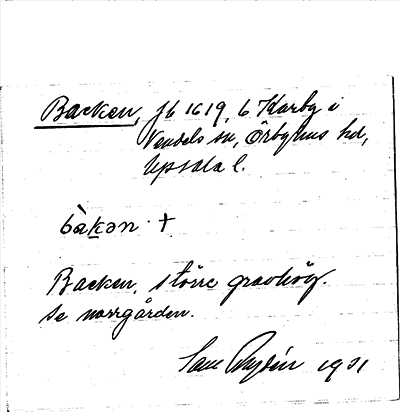 Backen, fb 1619, b. Karby i
Vendels sn, Örbyhus hd,
Upsala l.
bàkən +
Backen, större gravhög.
se norrgården.
Rydén 1931